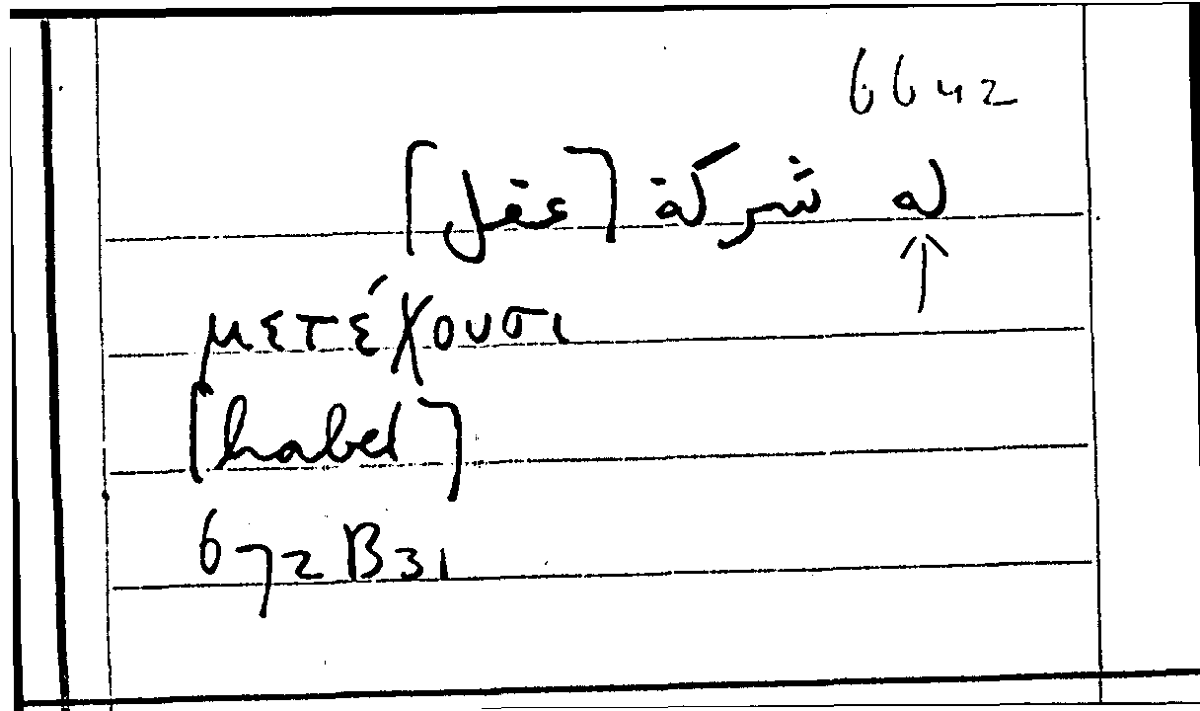 6642
له شركة [عقل]
↑
μετέχουσι
[habet]
672 B 31